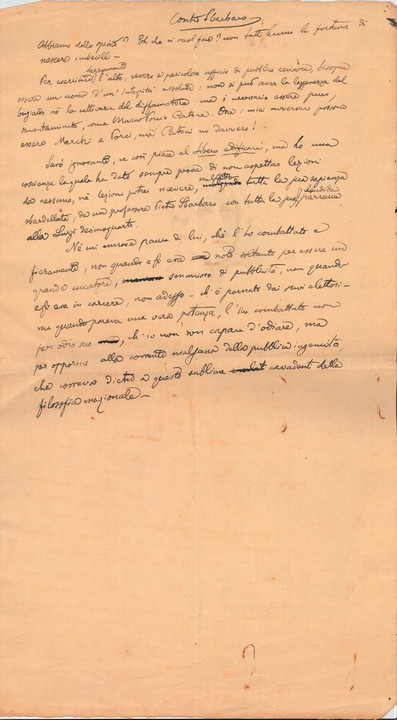 Contro Sbarbaro
Abbiamo dello spirito? Eh che ci vuol fare? non tutti hanno la fortuna di
nascere imbecilli —
degnamente
Per esercitare l'alto, severo e pericoloso ufficio di pubblico censore, bisogna
essere un uomo d'un' integrità assoluta: non si può avere la leggerezza del
né la del diffamatore — ma è necessario essere puri,
come Marco Porcio Catone. Ora: i miei avversari possono
essere Marchi e Porci, ma Catoni no davvero!
Sarò ignorante, se così piace al libero , ma ho una
coscienza la quale ha dato sempre prova di non aspettare lezioni
da nessuno, né lezioni potrei ricevere, malgrado tutta la sua sapienza
sbardellata, da un professore Pietro Sbarbaro con tutta la sua splendida parrucca
alla Luigi decimoquarto.
Né mi ancora paura di lui, ché l'ho combattuto e
fieramente, non quando egli era noto soltanto per essere un
grande seccatore, smanioso di pubblicità, non quando
egli era in carcere, non adesso — ch'è tornato dai suoi elettori —
ma quando pareva una vera potenza, l'ho combattuto non
per odio, ch'io non son capace d'odiare, ma
per oppormi alla corrente malsana della pubblica ingenuità
che correva dietro a questo sublime cavadenti della
filosofia nazionale —